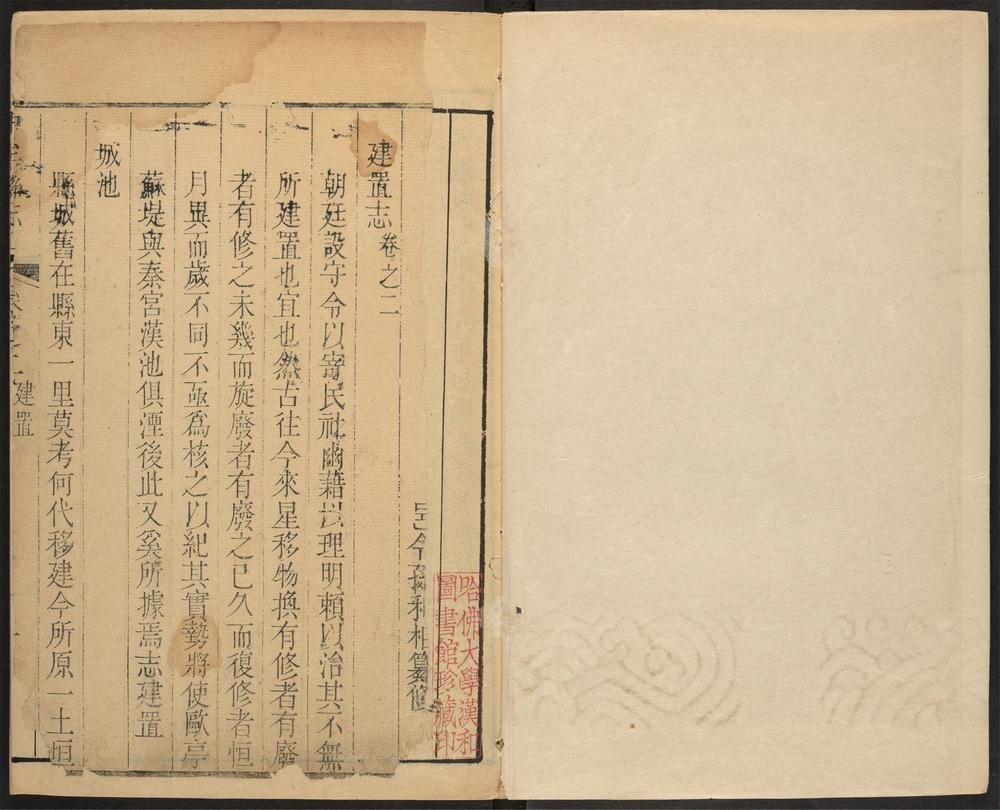 哈佛大學漢和
圖書館珍藏印
令孫和相纂修
建置志卷之二
朝廷設守令以寄民社幽藉以理明賴以治其不無
所建置也宜也然古往今來星移物換有修者有廢
者有修之未幾而旋廢者有廢之已久而復修者恒
月異而歲不同不亟爲核之以紀其實勢將使歐亭
蘇堤與秦宮漢池俱湮後此又奚所據焉志建置
城池
縣城舊在縣東一里莫考何代移建今所原一土垣
建置